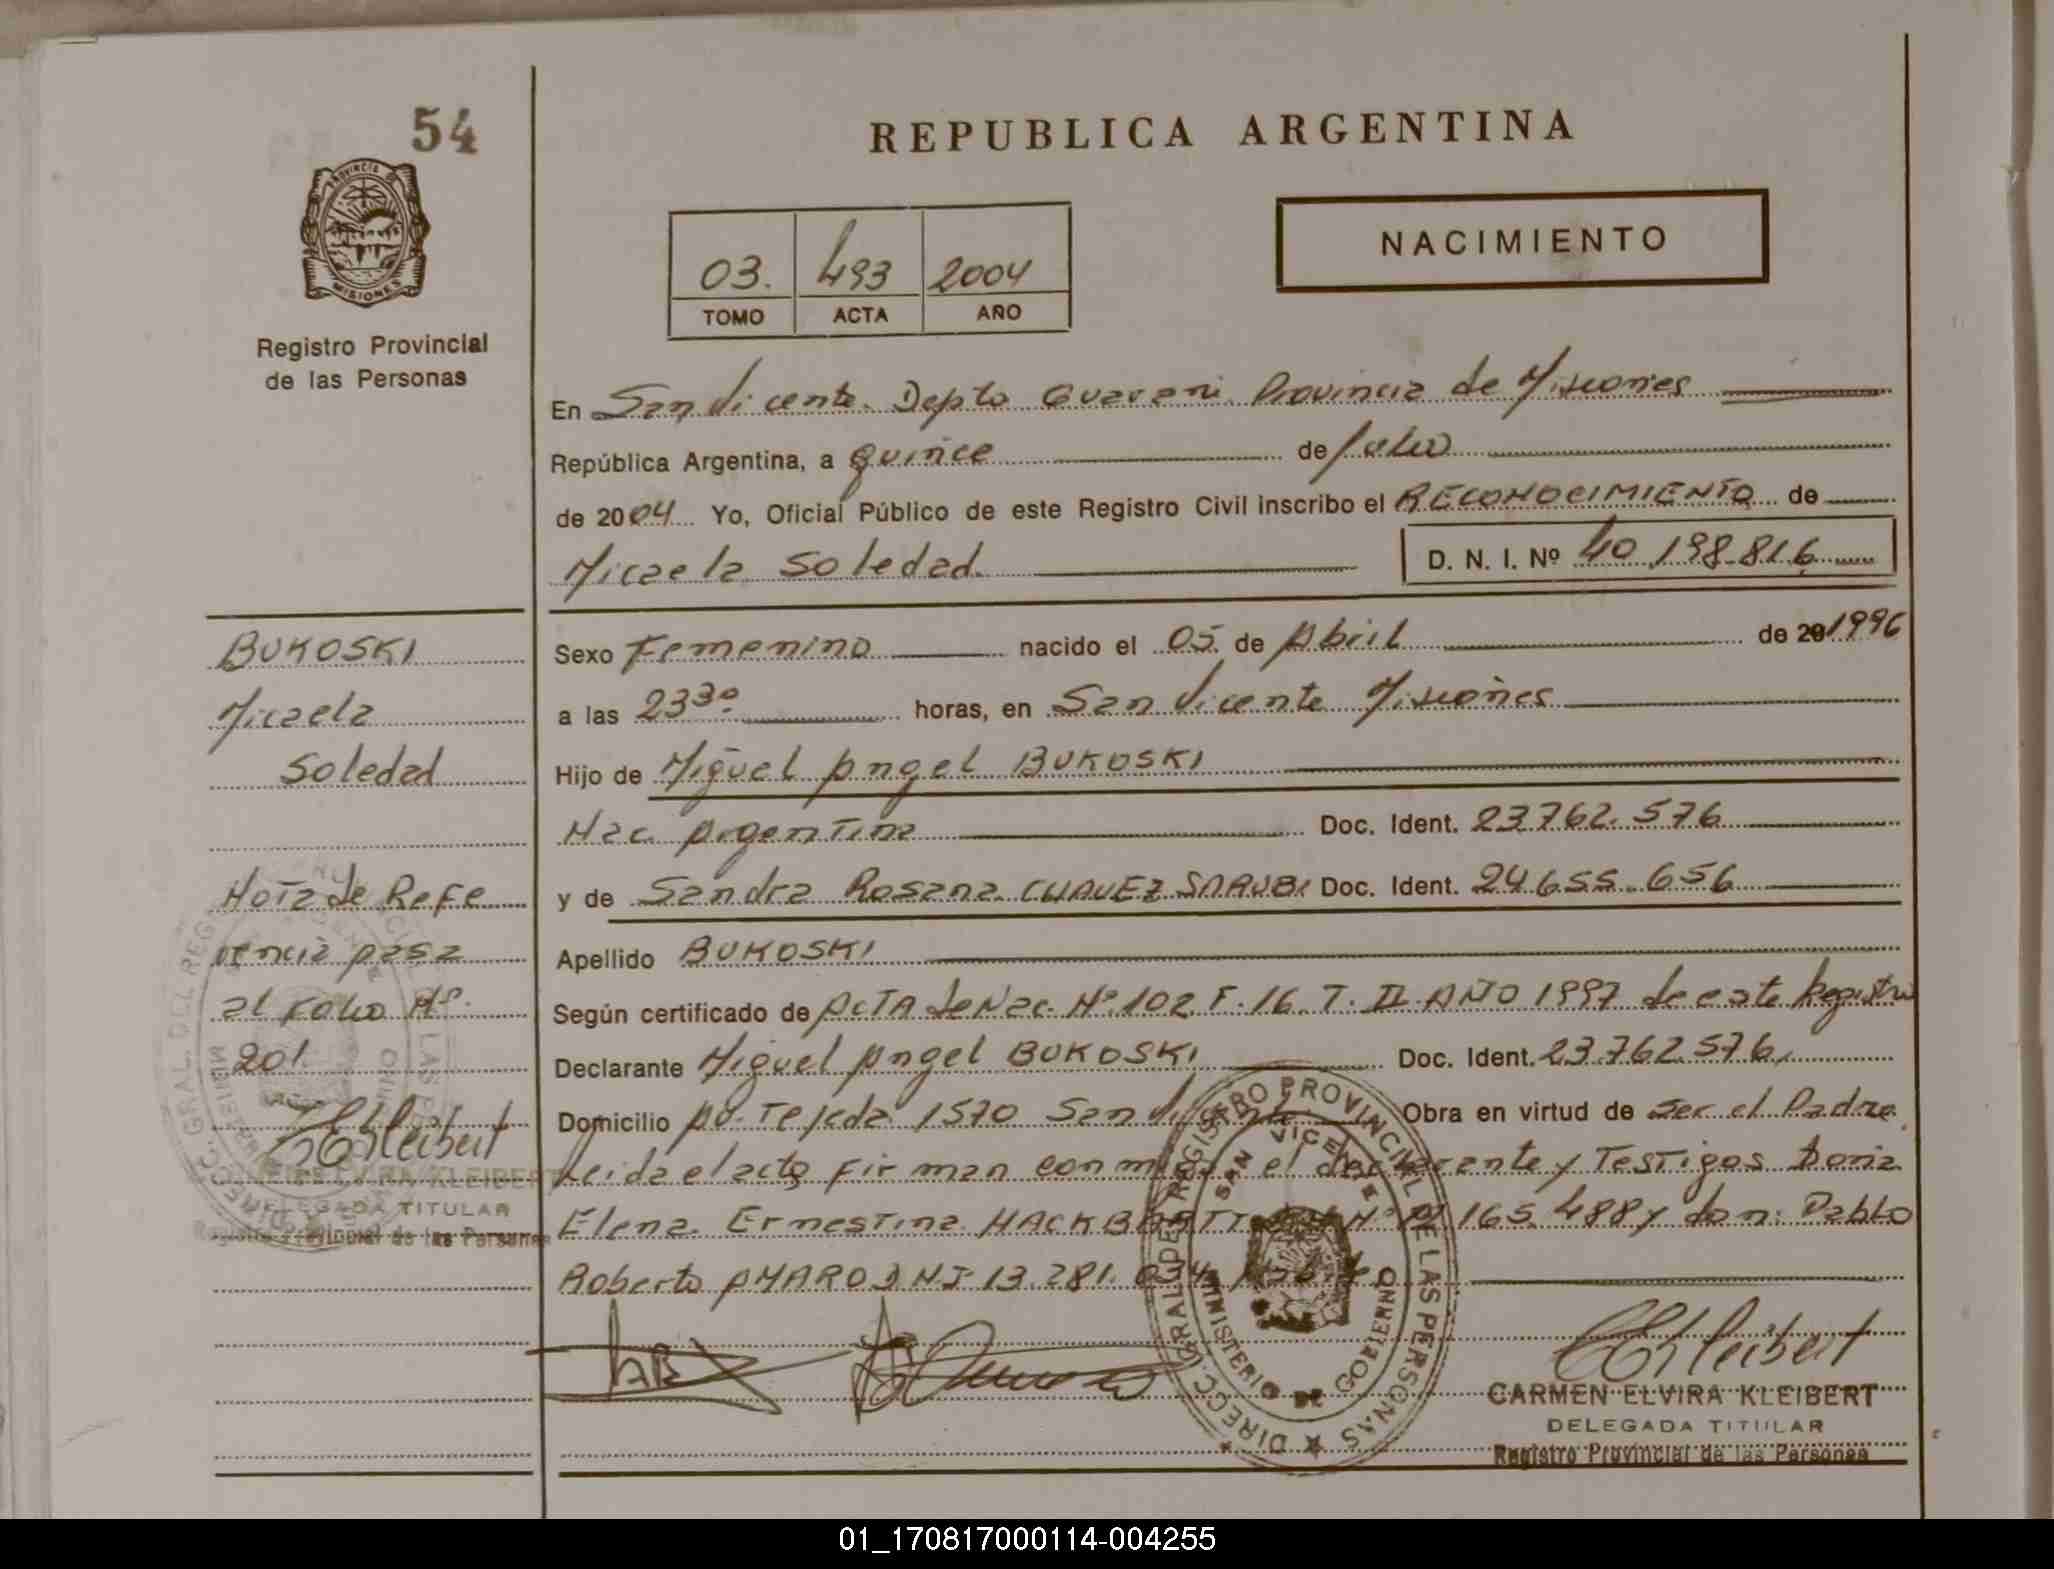 54
REPUBLICA ARGENTINA
PROVINCIA DE
MISIONES
Registro Provincial
de las Personas
03. 493 2004
TOMO ACTA AÑO
NACIMIENTO
En San Vicente. Depto Guarani. Provincia de Misiones
República Argentina, a quince de Julio
de 2004 Yo, Oficial Público de este Registro Civil inscribo el RECONOCIMIENTO de
Micaela Soledad. D. N. I. Nº 40.198.816
BUKOSKI
Micaela
Soledad
Nota de Refe
rencia pasa
al Folio Nº.
201.
CARMEN ELVIRA KLEIBERT
DELEGADA TITULAR
Registro Provincial de las Personas
Sexo Femenino nacido el 05 de Abril de 20 1996
a las 23 30 horas, en San Vicente Misiones
Hijo de Miguel Angel BUKOSKI
Nac. Argentina Doc. Ident. 23762.576
y de Sandra Rosana CHAVEZ Doc. Ident. 24655.656
Apellido BUKOSKI
Según certificado de ACTA de Nac. Nº.102 F.16. T. II AÑO 1997 de este Registro
Declarante Miguel Angel BUKOSKI Doc. Ident. 23.762.576.
Domicilio Av. Tejeda 1570 San Vicente Obra en virtud de Ser el Padre.
Leida el acta firman conmigo el declarante y Testigos Doña
Elena Ernestina HACKBARTT 165.488 y don: Pablo
Roberto AMARO DNI 13.281.
DIRECC. GRAL. DE REGISTRO PROVINCIAL DE LAS PERSONAS
SAN VICENTE
MINISTERIO DE GOBIERNO
CKleibert
CARMEN ELVIRA KLEIBERT
DELEGADA TITULAR
Registro Provincial de las Personas
01_170817000114-004255